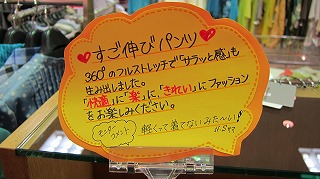 すご伸びパンツ
360°のフルストレッチで「サラッと感」も
生み出しました。
「快適」に「楽」に、「きれい」にファッション
をお楽しみください。
モニター
コメント
軽くって着てないみた〜い!